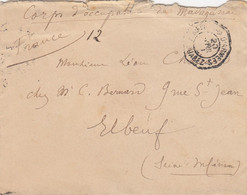 Corps d'occupation de Madagascar
France 12
Monsieur Léon
chez Mr C. Bernard 9 rue St Jean
Elbeuf
(Seine Inférieure)